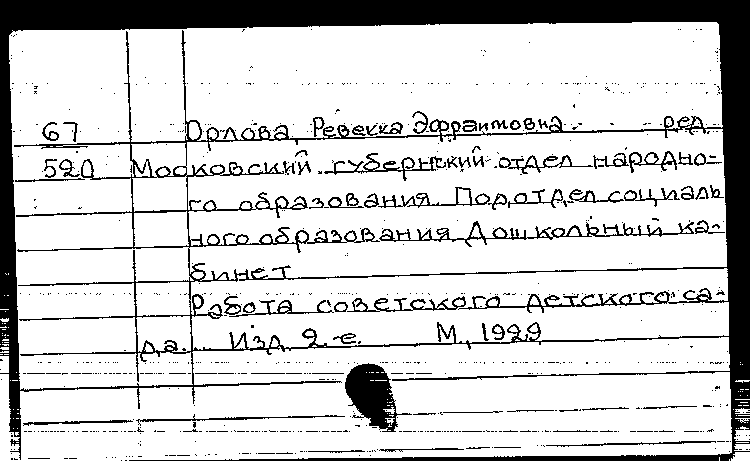 67 Орлова, Ревекка Эфраимовна ред.
520 Московский губернский отдел народно-
го образования. Подотдел социаль
ного образования Дошкольный ка-
бинет
Работа советского детского са-
да. Изд. 2-е. М., 1929